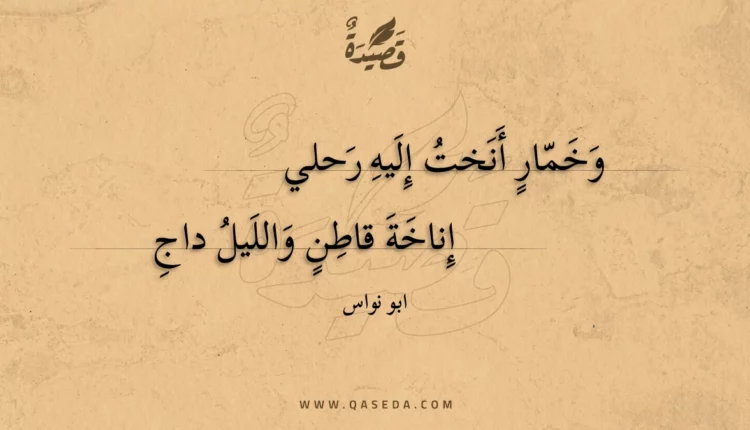 قَصِيدَةٌ
وَخَمّارٍ أَنَختُ إِلَيهِ رَحلي
إِناخَةَ قاطِنٍ وَاللَيلُ داجِ
ابو نواس
WWW.QASEDA.COM